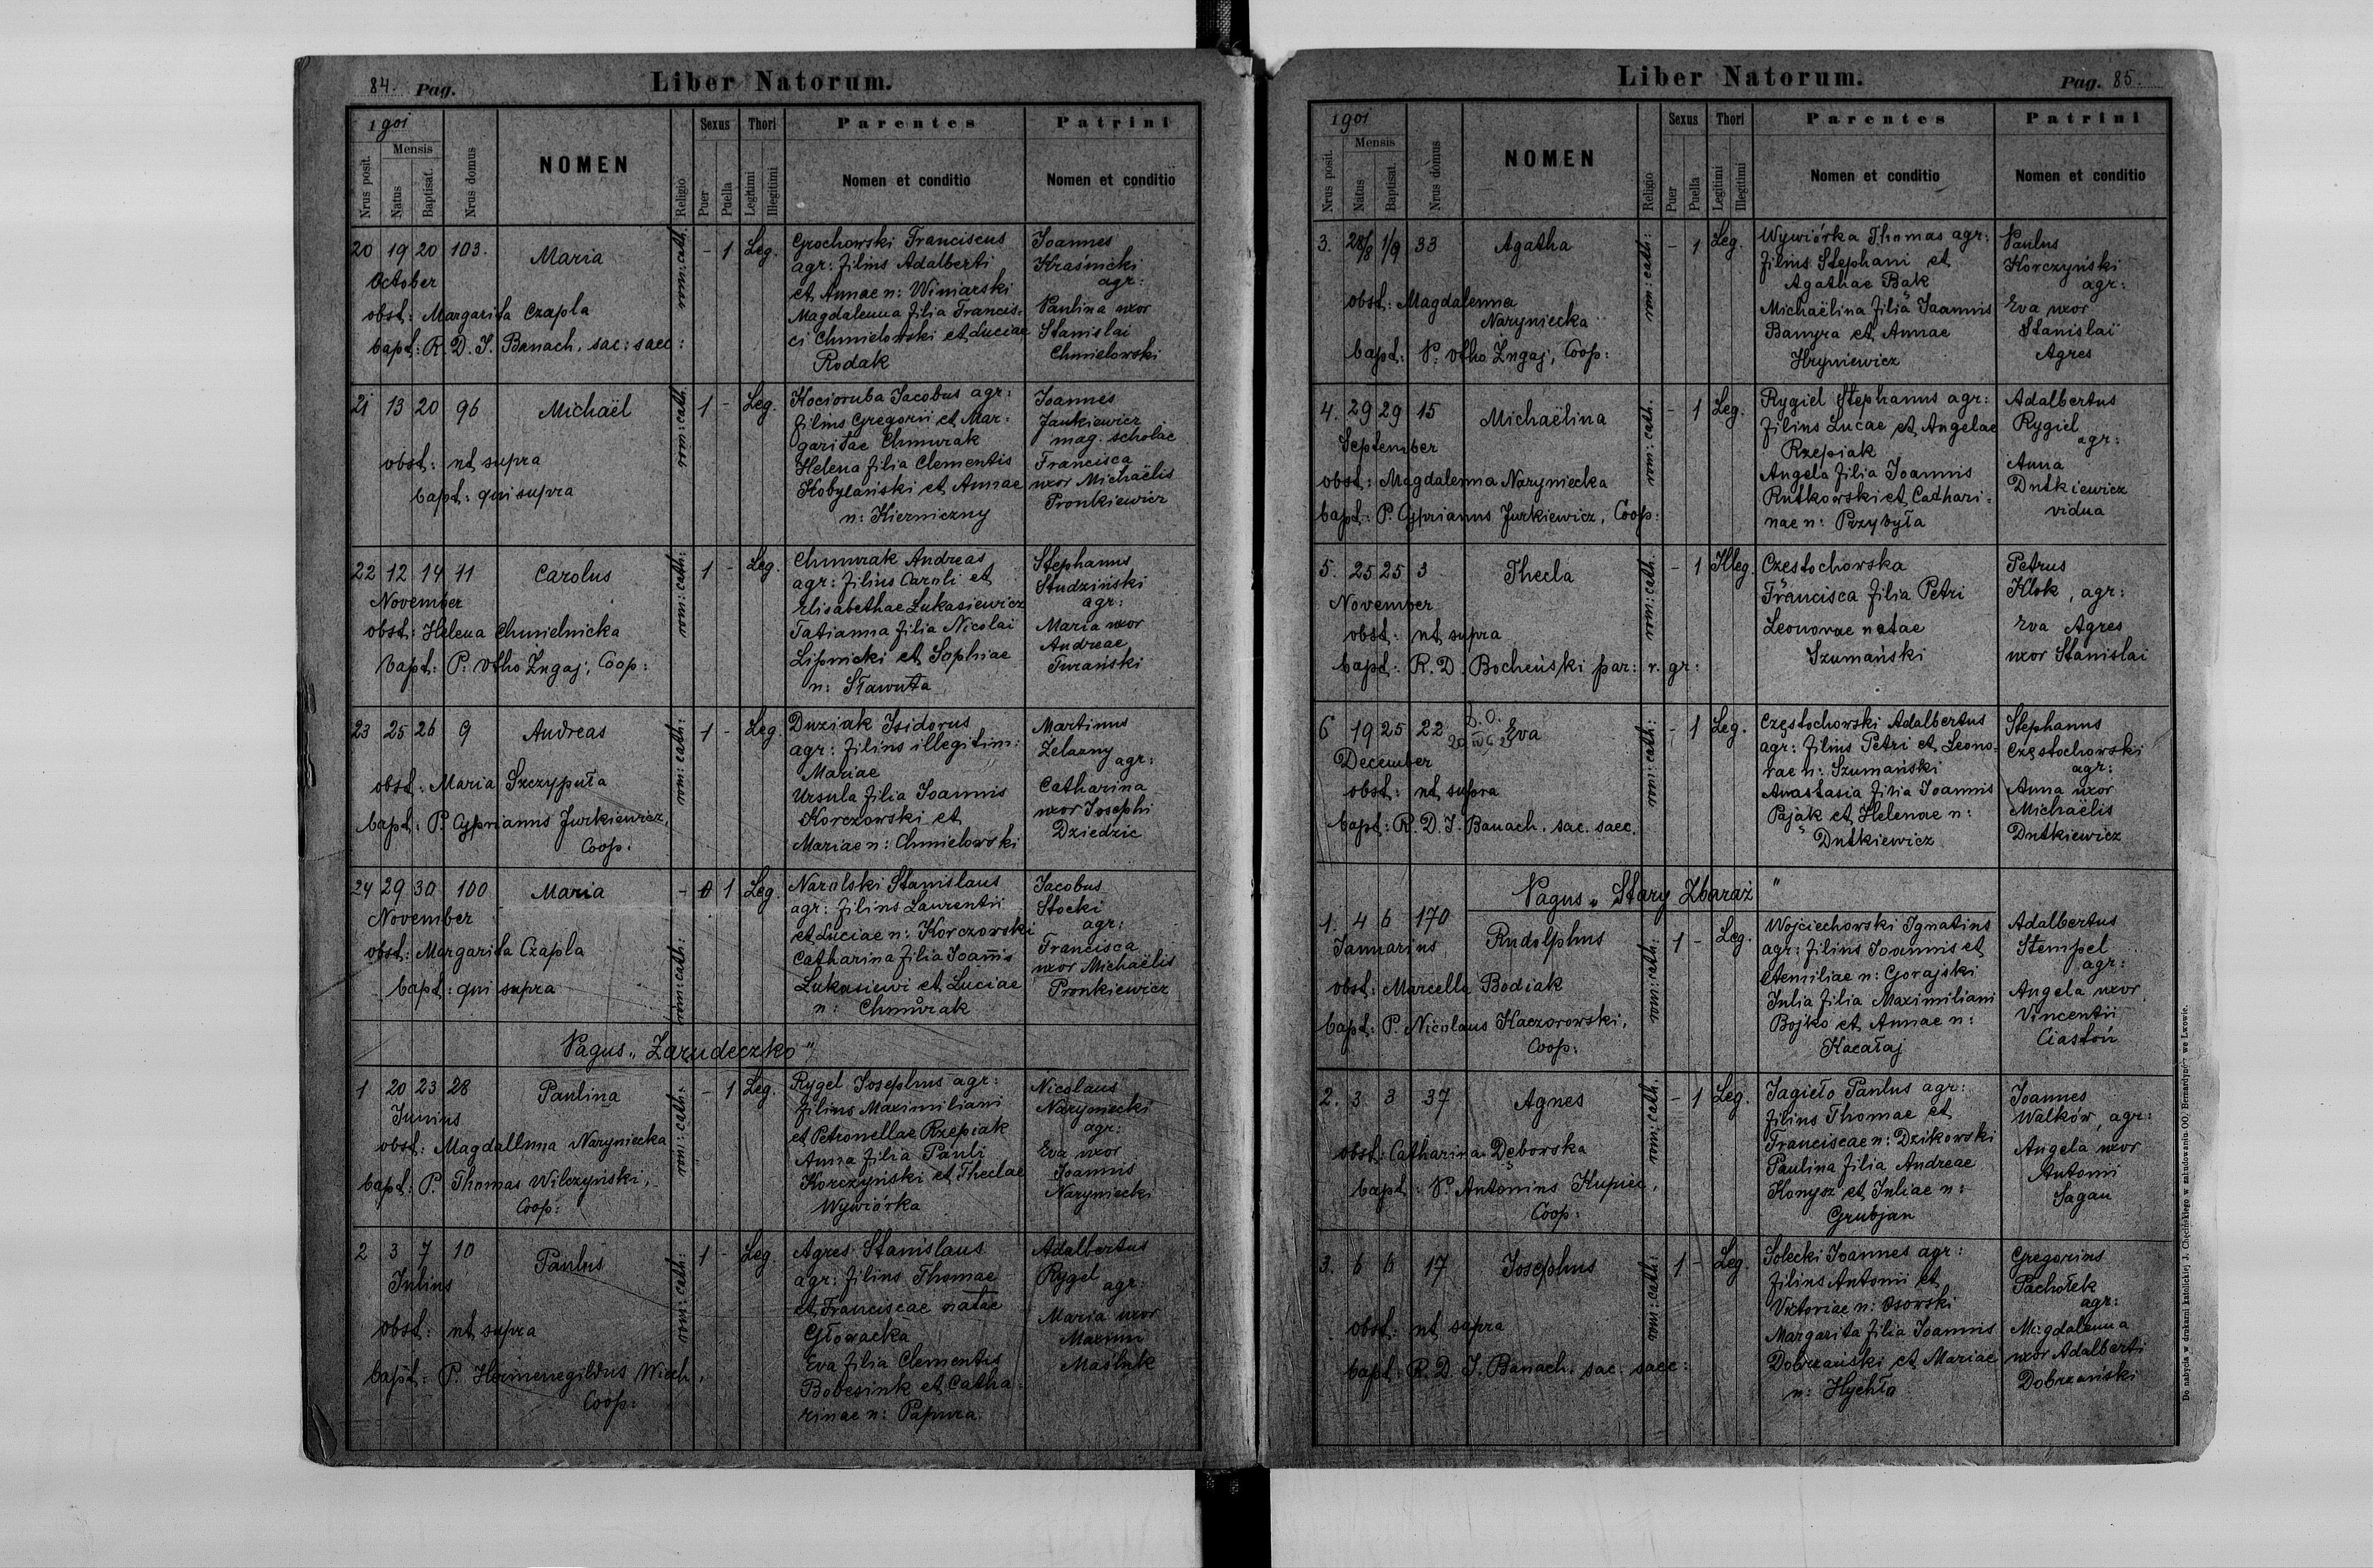 84. Pag.
Liber Natorum.
1901
Nrus posit.
Mensis
Natus
Baptisat.
Nrus domus
NOMEN
Religio
Sexus
Puer
Puella
Thori
Legitimi
Illegitimi
Parentes
Nomen et conditio
Patrini
Nomen et conditio
20 19 20 103. Maria rom: cath. - 1 Leg.
October
obst: Margarita Czapla
bapt: R. D. J. Banach. sac: saec:
Grochowski Franciscus
agr: filius Adalberti
et Annae n: Winiarski
Magdalenna filia Francis-
ci Chmielowski et Luciae
Rodak
Joannes
Kraśnicki
agr:
Paulina uxor
Stanislai
Chmielowski
21 13 20 96 Michaël rom: cath. 1 - Leg.
obst: ut supra
bapt: qui supra
Kocioruba Jacobus agr:
filius Gregorii et Mar-
garitae Chmurak
Helena filia Clementis
Kobylański et Annae
n: Kierniczny
Joannes
Jankiewicz
mag. scholae
Francisca
uxor Michaëlis
Pronkiewicz
22 12 14 11 Carolus rom: cath: 1 - Leg.
November
obst: Helena Chmielnicka
bapt: P. Otho Żugaj, Coop:
Chmurak Andreas
agr: filius Caroli et
Elisabethae Łukasiewicz
Tatianna filia Nicolai
Lipnicki et Sophiae
n: Sławuta
Stephanus
Studziński
agr:
Maria uxor
Andreae
Turański
23 25 26 9 Andreas rom: cath: 1 - Leg.
obst: Maria Szczyputa
bapt: P. Cyprianus Jurkiewicz,
Coop:
Duziak Isidorus
agr: filius illegitim:
Mariae
Ursula filia Joannis
Korczowski et
Mariae n: Chmielowski
Martinus
Żelazny
agr:
Catharina
uxor Josephi
Dziedzic
24 29 30 100 Maria rom: cath: - 1 Leg.
November
obst: Margarita Czapla
bapt: qui supra
Narolski Stanislaus
agr: filius Laurentii
et Luciae n: Korczowski
Catharina filia Joannis
Łukasiewi et Luciae
n: Chmurak
Jacobus
Stocki
agr:
Francisca
uxor Michaëlis
Pronkiewicz
Pagus „Zarudeczko"
1 20 23 28 Paulina rom: cath: - 1 Leg.
Junius
obst: Magdalenna Naryniecka
bapt: P. Thomas Wilczyński,
Coop:
Rygel Josephus agr:
filius Maximiliani
et Petronellae Rzepiak
Anna filia Pauli
Korczyński et Theclae
Wywiórka
Nicolaus
Naryniecki
agr:
Eva uxor
Joannis
Naryniecki
2 3 7 10 Paulus rom: cath: 1 - Leg.
Julius
obst: ut supra
bapt: P. Hermenegildus Wiech,
Coop:
Agres Stanislaus
agr: filius Thomae
et Franciscae natae
Głowacka
Eva filia Clementis
et Catha
rinae n: Papura
Adalbertus
Rygel
agr:
Maria uxor
Maximi
Maśluk
Liber Natorum.
Pag. 85.
1901
Nrus posit.
Mensis
Natus
Baptisat.
Nrus domus
NOMEN
Religio
Sexus
Puer
Puella
Thori
Legitimi
Illegitimi
Parentes
Nomen et conditio
Patrini
Nomen et conditio
3. 28/8 1/9 33 Agatha rom: cath: - 1 Leg.
obst: Magdalenna
Naryniecka
bapt: P. Otho Żugaj, Coop:
Wywiórka Thomas agr:
filius Stephani et
Agathae Bąk
Michaëlina filia Joannis
Bamyra et Annae
Hryniewicz
Paulus
Korczyński
agr:
Eva uxor
Stanislai
Agres
4. 29 29 15 Michaëlina rom: cath: - 1 Leg.
September
obst: Magdalenna Naryniecka
bapt: P. Cyprianus Jurkiewicz, Coop:
Rygiel Stephanus agr:
filius Lucae et Angelae
Rzepiak
Angela filia Joannis
Rutkowski et Cathari-
nae n: Przybyła
Adalbertus
Rygiel
agr:
Anna
Dutkiewicz
vidua
5. 25 25 3 Thecla rom: cath: - 1 Illeg.
November
obst: ut supra
bapt: R. D. Bocheński par: r. gr:
Częstochowska
Francisca filia Petri
Leonorae natae
Szumański
Petrus
Klok, agr:
Eva Agres
uxor Stanislai
6 19 25 22 Eva rom: cath: - 1 Leg.
December
obst: ut supra
bapt: R. D. J. Banach. sac. saec.
Częstochowski Adalbertus
agr: filius Petri et Leono-
rae n: Szumański
Anastasia filia Joannis
Pająk et Helenae n:
Dutkiewicz
Stephanus
Częstochowski
agr:
Anna uxor
Michaëlis
Dutkiewicz
Pagus „Stary Zbaraż"
1. 4 6 170 Rudolphus rom: cath: 1 - Leg.
Januarius
obst: Marcella Bodiak
bapt: P. Nicolaus Kaczorowski,
Coop:
Wojciechowski Ignatius
agr: filius Joannis et
Aemiliae n: Gorajski
Julia filia Maximiliani
Bojko et Annae n:
Kacałaj
Adalbertus
Stempel
agr:
Angela uxor
Vincentii
Ciastoń
2. 3 3 37 Agnes rom: cath. - 1 Leg.
obst: Catharina Dęborska
bapt: P. Antonius Kupiec,
Coop:
Jagieło Paulus agr:
filius Thomae et
Franciscae n: Dzikowski
Paulina filia Andreae
Konysz et Juliae n:
Grubjan
Joannes
Walków, agr:
Angela uxor
Antonii
Sagan
3. 6 6 17 Josephus rom: cath: 1 - Leg.
obst: ut supra
bapt: R. D. J. Banach. sac. saec:
Solecki Joannes agr:
filius Antonii et
Victoriae n: Osowski
Margarita filia Joannis
Dobrzański et Mariae
n: Hychło
Gregorius
Pachołek
agr:
Magdalenna
uxor Adalberti
Dobrzański
Do nabycia w drukarni katolickiej J. Chęcińskiego w zabudowaniu OO. Bernardynów we Lwowie.